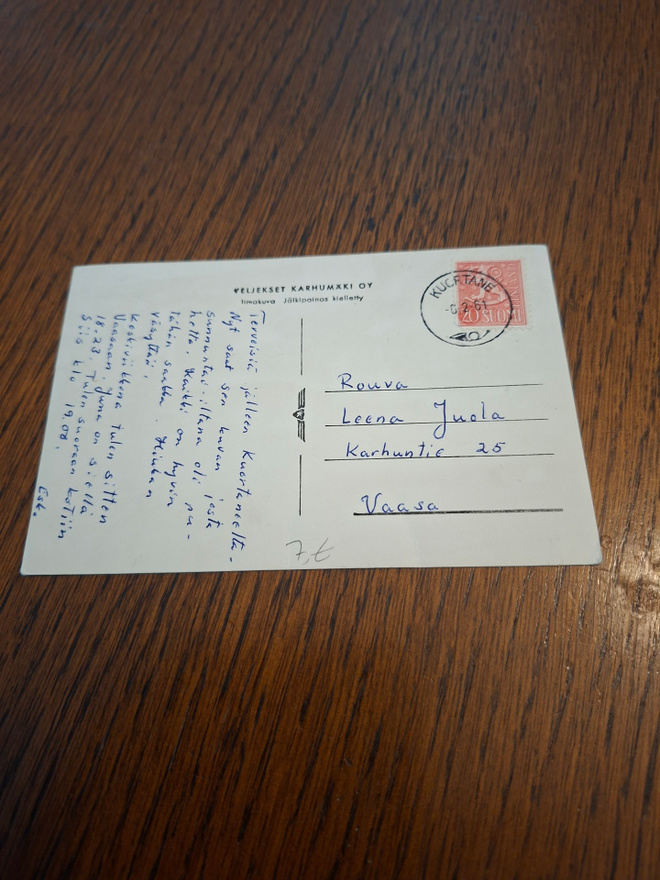 VELJEKSET KARHUMÄKI OY
Ilmakuva Jälkipainos kielletty
KUORTANE
-8.2.61
SUOMI
FINLAND
20
Terveisiä jälleen Kuortaneelta.
Nyt saat sen kuvan josta
sunnuntai-iltana oli pu-
hetta. Kaikki on hyvin
tähän saakka. Hiukan
väsyttää.
Keskiviikkona tulen sitten
Vaasaan. Juna on siellä
18.23. Tulen suoraan kotiin
Siis klo 19.00.
Esko
Rouva
Leena Juola
Karhuntie 25
Vaasa
7,-